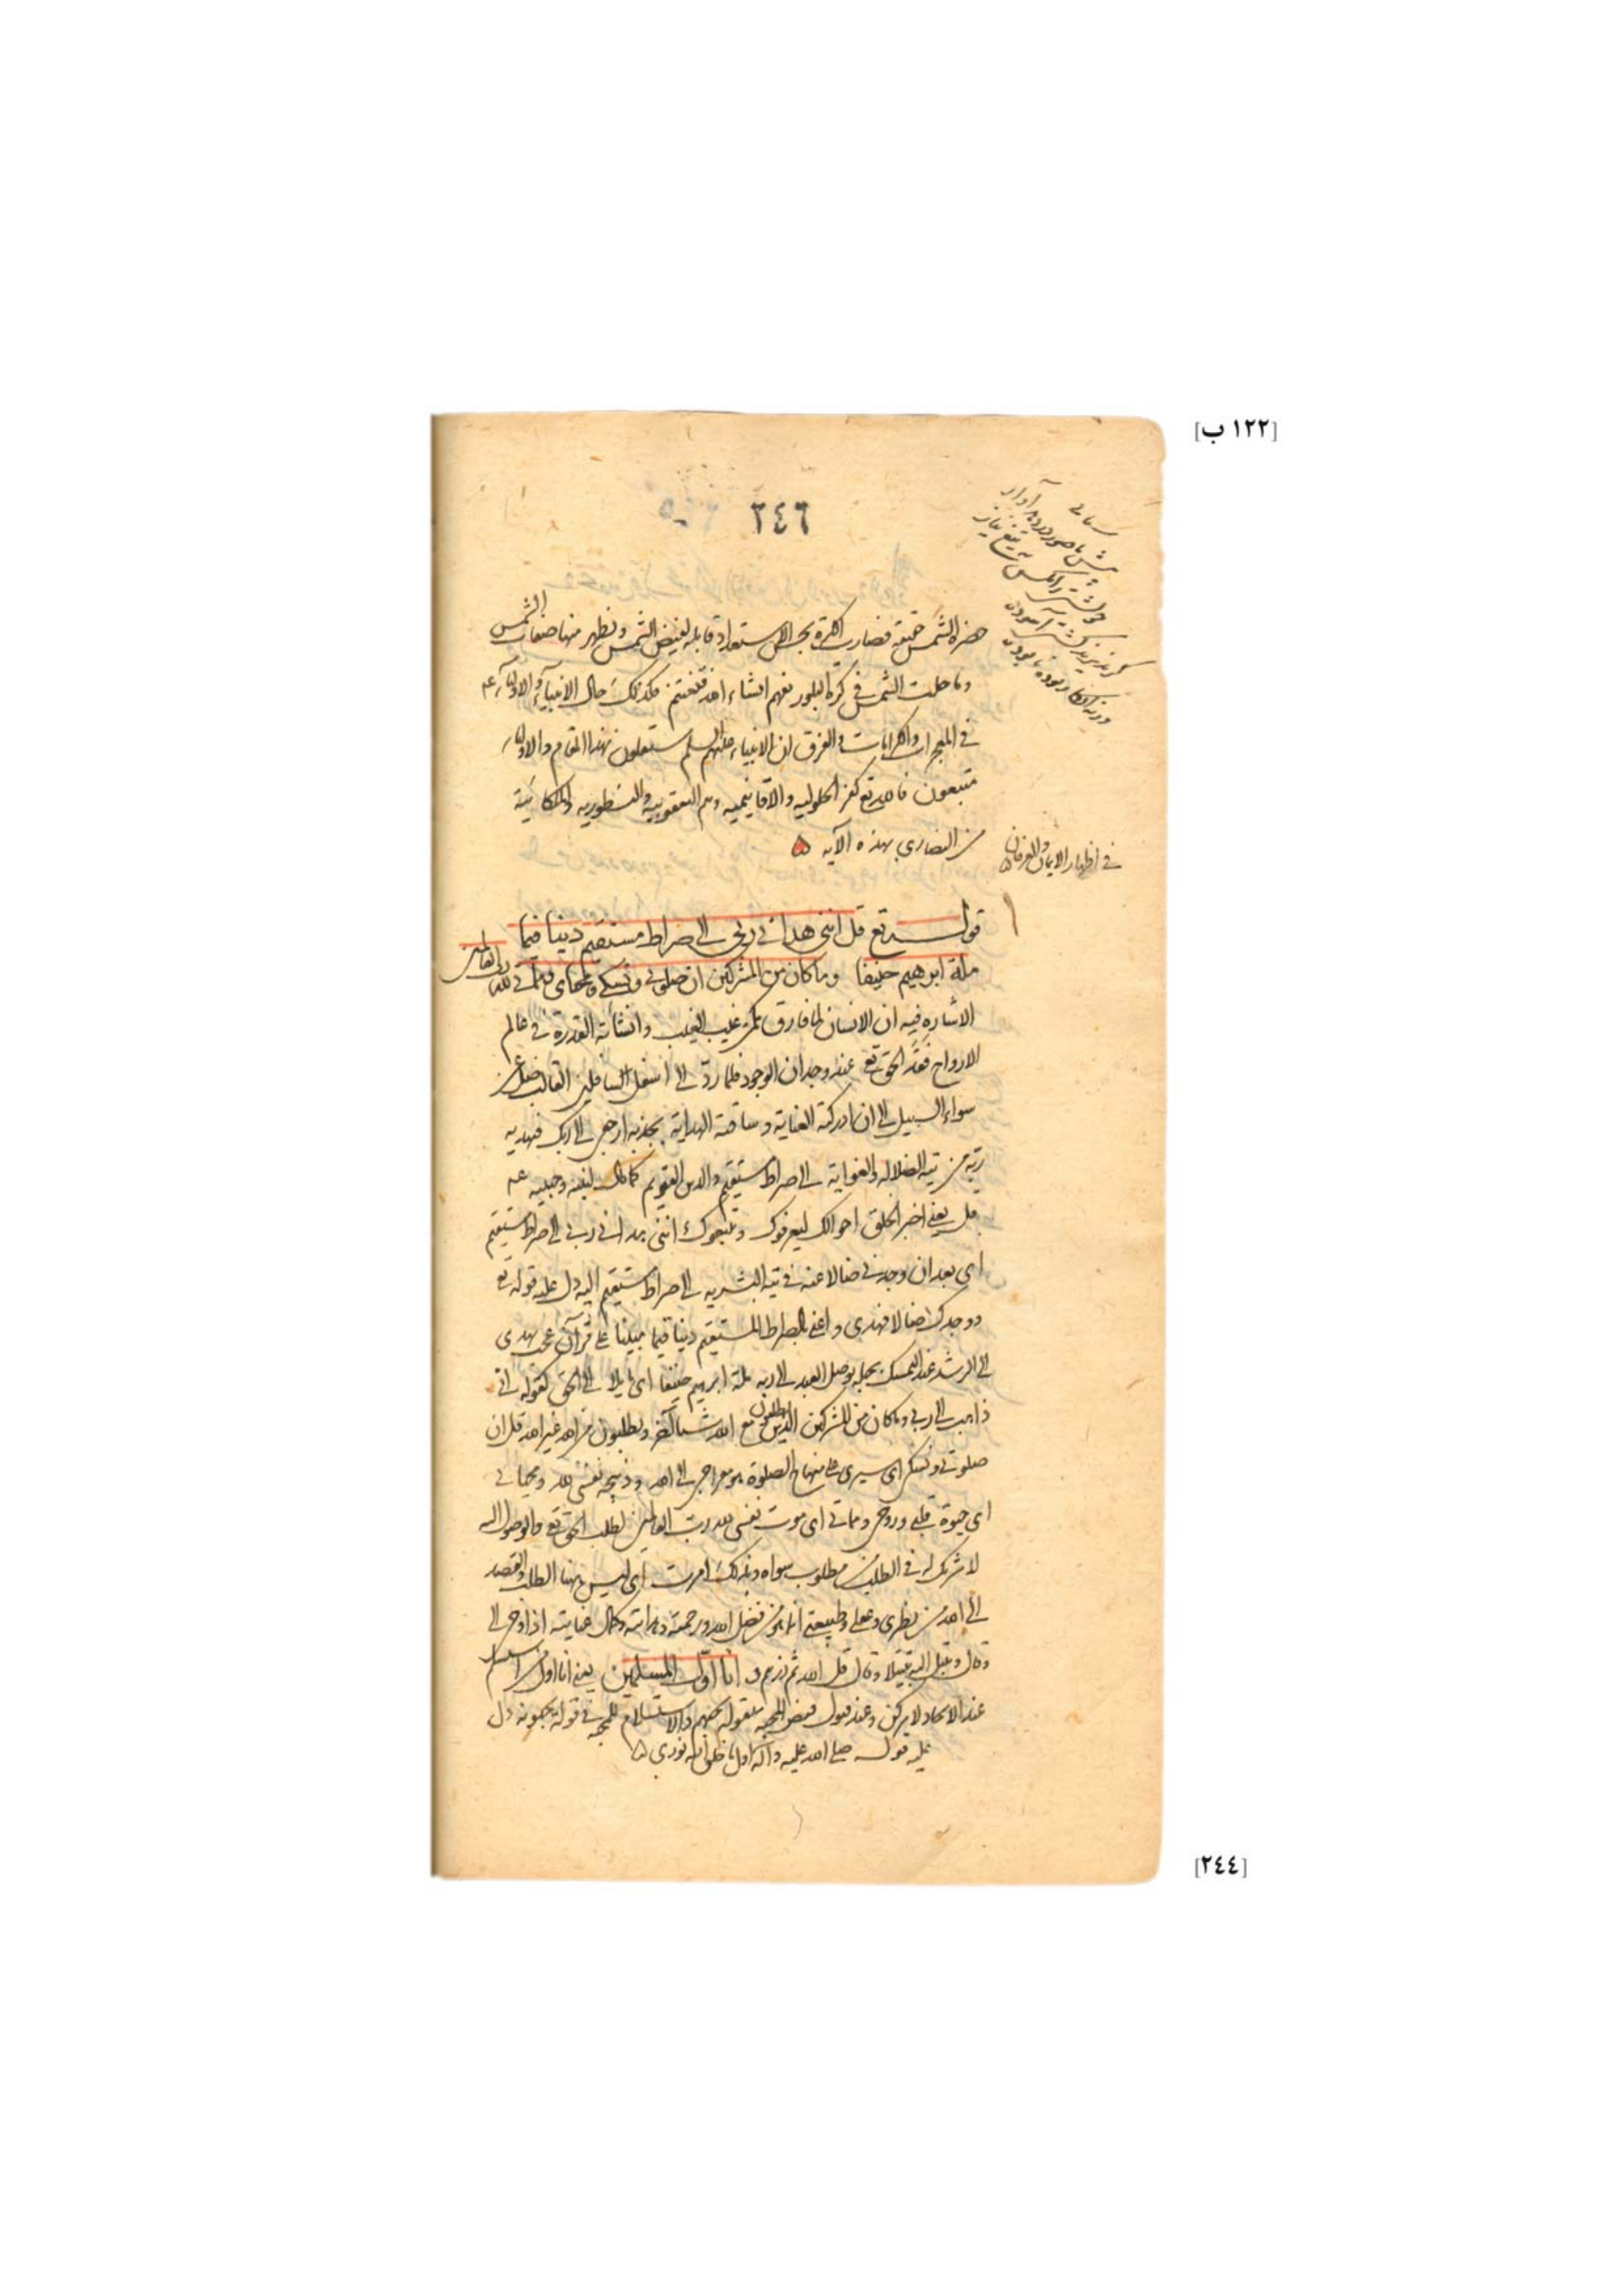 [١٢٢ ب]
٢٤٦
حضرة الشمس حقيقة فصارت الكرة بحسب الاستعداد قابلة لفيض الشمس وتظهر منها صفات الشمس
وما حلت الشمس في كرة البلور تفهم انشاء الله وتغتنم فكذلك حال الانبياء والاولياء عم
في المعجزات والكرامات والفرق ان الانبياء عليهم السلم مستقلون بهذا المقام والاولياء
متبعون فالله تع كفر الحلولية والاقانيمية وهم اليعقوبية والنسطورية والملكائية
من النصارى بهذه الآية
في اظهار الايمان والعرفان
قوله تع قل انني هداني ربي الى صراط مستقيم دينا قيما
ملة ابرهيم حنيفا وما كان من المشركين ان صلوتي ونسكي ومحياي ومماتي لله رب العالمين
الاشارة فيه ان الانسان لما فارق مكمن غيب الغيب وانشأته القدرة في عالم
الارواح فقد الحق تع عند وجدان الوجود فلما رد الى اسفل السافلين القالب ضل عن
سواء السبيل الى ان ادركته العناية وساقته الهداية بجذبة ارجعي الى ربك فهديه
ربه من تيه الضلالة والغواية الى صراط مستقيم والدين القويم كما قال لنبيه وحبيبه عم
قل يعني اخبر الخلق احوالك ليعرفوك ويتبعوك انني هداني ربي الى صراط مستقيم
اي بعد ان وجدني ضالا عنه في تيه البشرية الى صراط مستقيم اليه دل عليه قوله تع
ووجدك ضالا فهدى واعني بالصراط المستقيم دينا قيما مبينا على قرآن عجب يهدي
الى الرشد عند التمسك بحبله يوصل العبد الى ربه ملة ابرهيم حنيفا اي مايلا الى الحق كقوله اني
ذاهب الى ربي وما كان من المشركين الذين يطلبون مع الله شيئا آخر ويطلبون من الله غير الله قل ان
صلوتي ونسكي اي سيري على منهاج الصلوة هو معراجي الى الله وذبيحة نفسي لله ومحياي
اي حيوة قلبي وروحي ومماتي اي موت نفسي لله رب العالمين لطلب الحق تع والوصول اليه
لا شريك له في الطلب من مطلوب سواه وبذلك امرت اي ليس هذا الطلب والقصد
الى الله من نظري وعقلي وطبيعتي انما هو من فضل الله ورحمته وهدايته وكمال عنايته اذ اوحى الى
وقال وتبتل اليه تبتيلا وقال قل الله ثم ذرهم و انا اول المسلمين يعني انا اول من استسلم
عند الايجاد لامر كن وعند قبول فيض المحبة بقوله يحبهم والاستسلام للمحبة في قوله يحبونه دل
عليه قوله صلى الله عليه وآله اول ما خلق الله نوري
[٢٤٤]